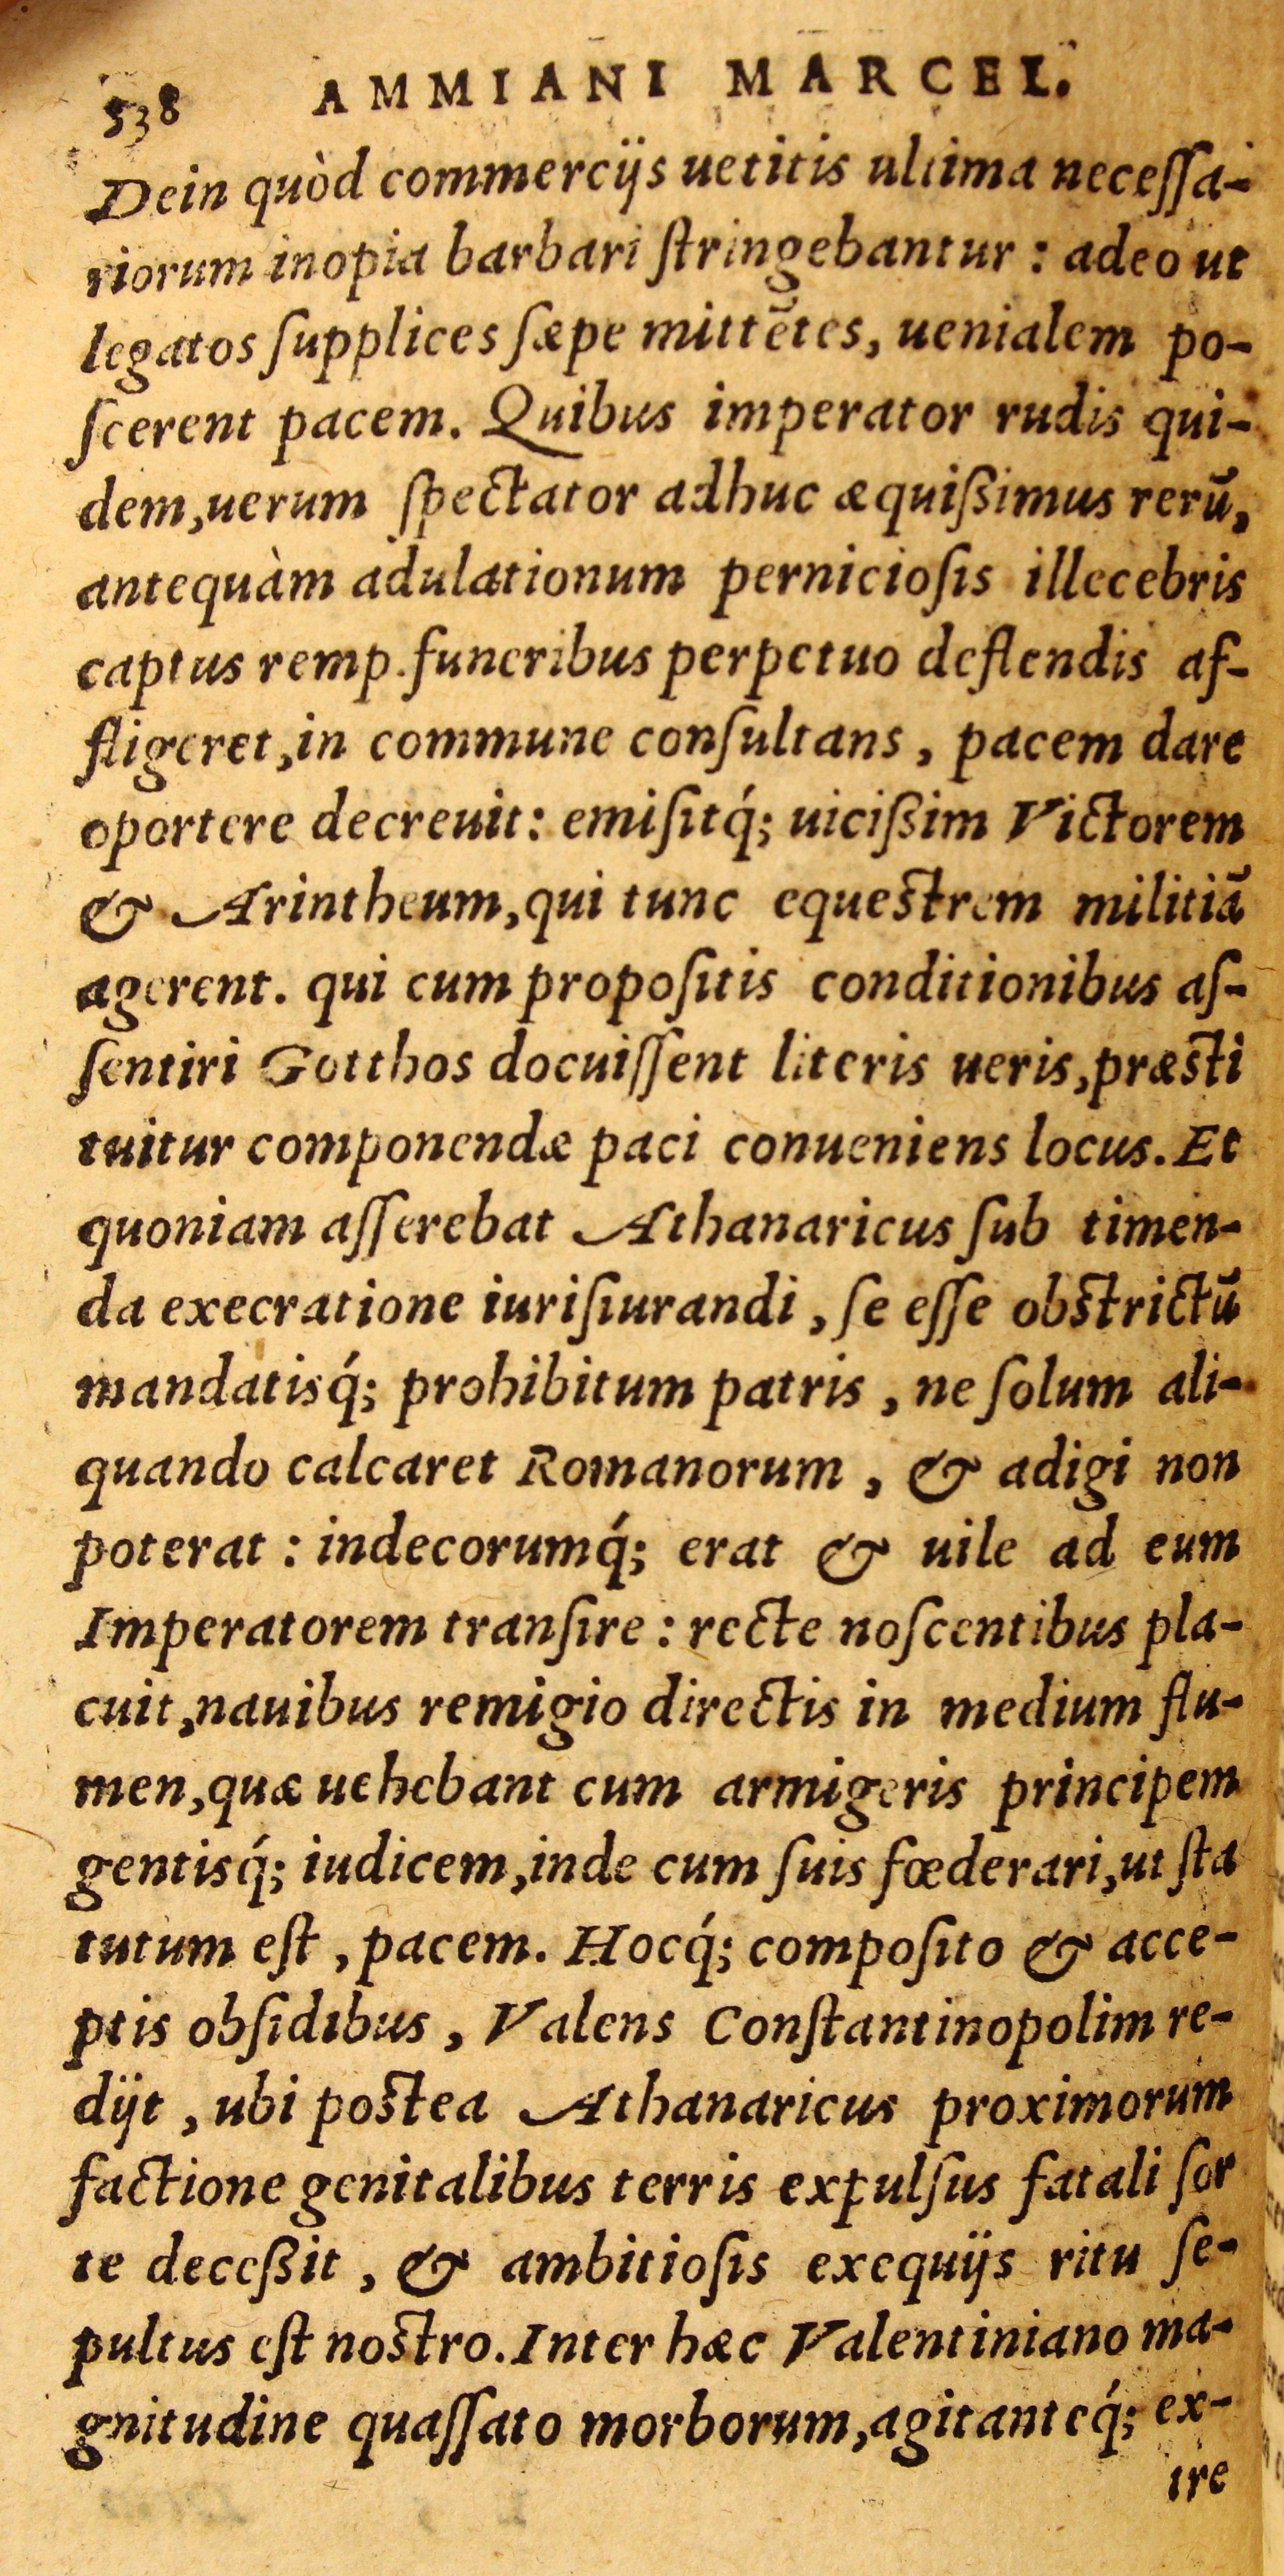 538 AMMIANI MARCEL.
Dein quòd commercijs uetitis ultima neceſſa-
riorum inopia barbari ſtringebantur : adeo ut
legatos ſupplices ſæpe mittētes, uenialem po-
ſcerent pacem. Quibus imperator rudis qui-
dem,uerum ſpectator adhuc æquiſsimus rerū,
antequàm adulationum pernicioſis illecebris
captus remp.funeribus perpetuo deflendis af-
fligeret,in commune conſultans , pacem dare
oportere decreuit: emiſitq́; uiciſsim Victorem
& Arintheum,qui tunc equeſtrem militiā
agerent. qui cum propoſitis conditionibus aſ-
ſentiri Gotthos docuiſſent literis ueris,præſti
tuitur componendæ paci conueniens locus. Et
quoniam aſſerebat Athanaricus ſub timen-
da execratione iuriſiurandi , ſe eſſe obſtrictū
mandatisq́; prohibitum patris , ne ſolum ali-
quando calcaret Romanorum , & adigi non
poterat : indecorumq́; erat & uile ad eum
Imperatorem tranſire : recte noſcentibus pla-
cuit,nauibus remigio directis in medium flu-
men,quæ uehebant cum armigeris principem
gentisq́; iudicem,inde cum ſuis fœderari,ut ſta
tutum eſt , pacem. Hocq́; compoſito & acce-
ptis obſidibus , Valens Conſtantinopolim re-
dijt , ubi poſtea Athanaricus proximorum
factione genitalibus terris expulſus fatali ſor
te deceſsit , & ambitioſis exequijs ritu ſe-
pultus eſt noſtro. Inter hæc Valentiniano ma-
gnitudine quaſſato morborum,agitanteq́; ex-
ire